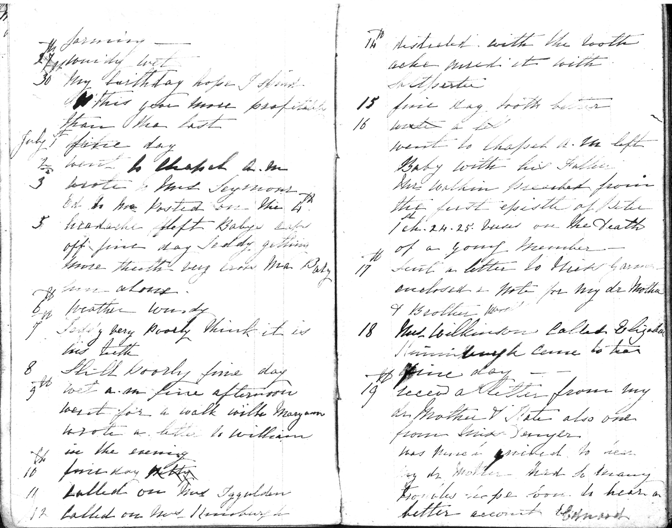 farming —
27th windy wet
30th My birthday hope I spend
this year more profitable
than the last
July 1st fine day
2 went to chapel a.m
3 wrote to Mrs Seymour
to be posted on the 4th
5 headache left Babys caps
off fine day Teddy getting
more teeth very cross Ma Baby
alone.
6th Weather windy
7th Teddy very Poorly Think it is
his teeth
8 Still Poorly fine day
9th wet a.m fine afternoon
went for a walk with Maryann
wrote a letter to William
in the evening
10th fine day
11 Called on Mrs Iggulden
12 Called on Mrs
14th distracted with the tooth
ache cured it with
saltpetre
15 fine day tooth better
16 wrote a
went to chapel a.m left
Baby with his Father
Mr preached from
the first epistle of Peter
1st ch. 24-25 verses on the Death
of a young Member —
17th Sent a letter to Miss
enclosed a Note for my dr Mother
& Brother
18 Mrs Wilkinson Called Elizabeth
came to tea
fine day —
19th recd a letter from my
dr Mother & Kate also one
from Miss
was grieved to hear
my dr Mother had so many
troubles hope soon to hear a
better account